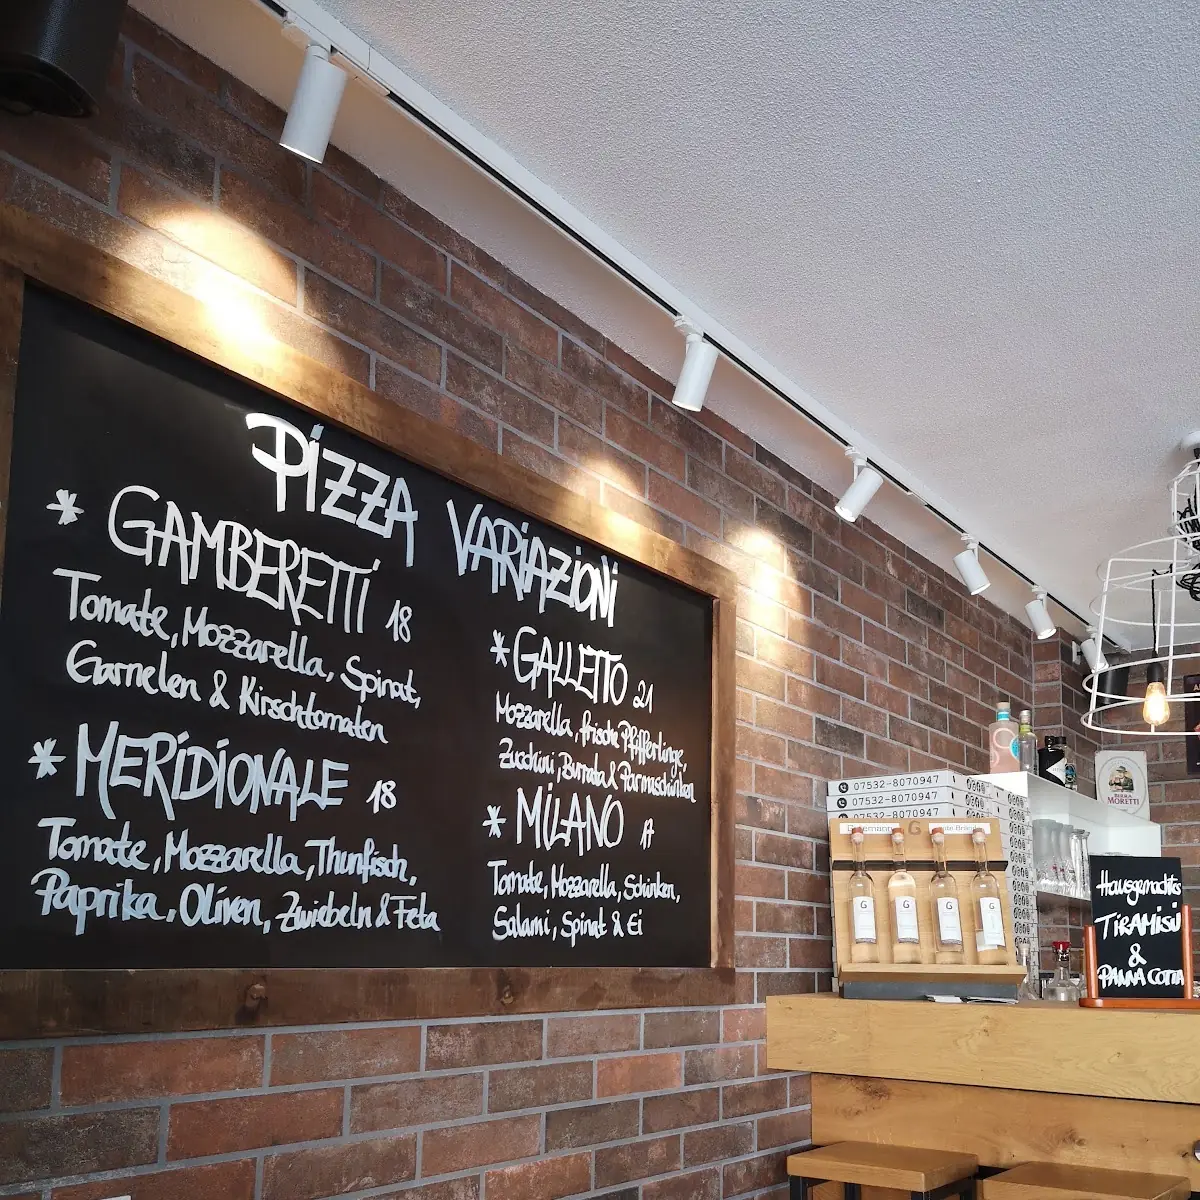 PIZZA VARIAZIONI
* GAMBERETTI 18
Tomate, Mozzarella, Spinat,
Garnelen & Kirschtomaten
* MERIDIONALE 18
Tomate, Mozzarella, Thunfisch,
Paprika, Oliven, Zwiebeln & Feta
* GALLETTO 21
Mozzarella, frische Pfifferlinge,
Zucchini, Burrata & Parmaschinken
* MILANO 17
Tomate, Mozzarella, Schinken,
Salami, Spinat & Ei
07532-8070947
07532-8070947
07532-8070947
G
G
G
G
G
BIRRA
MORETTI
Hausgemachtes
TIRAMISU
&
PANNA COTTA